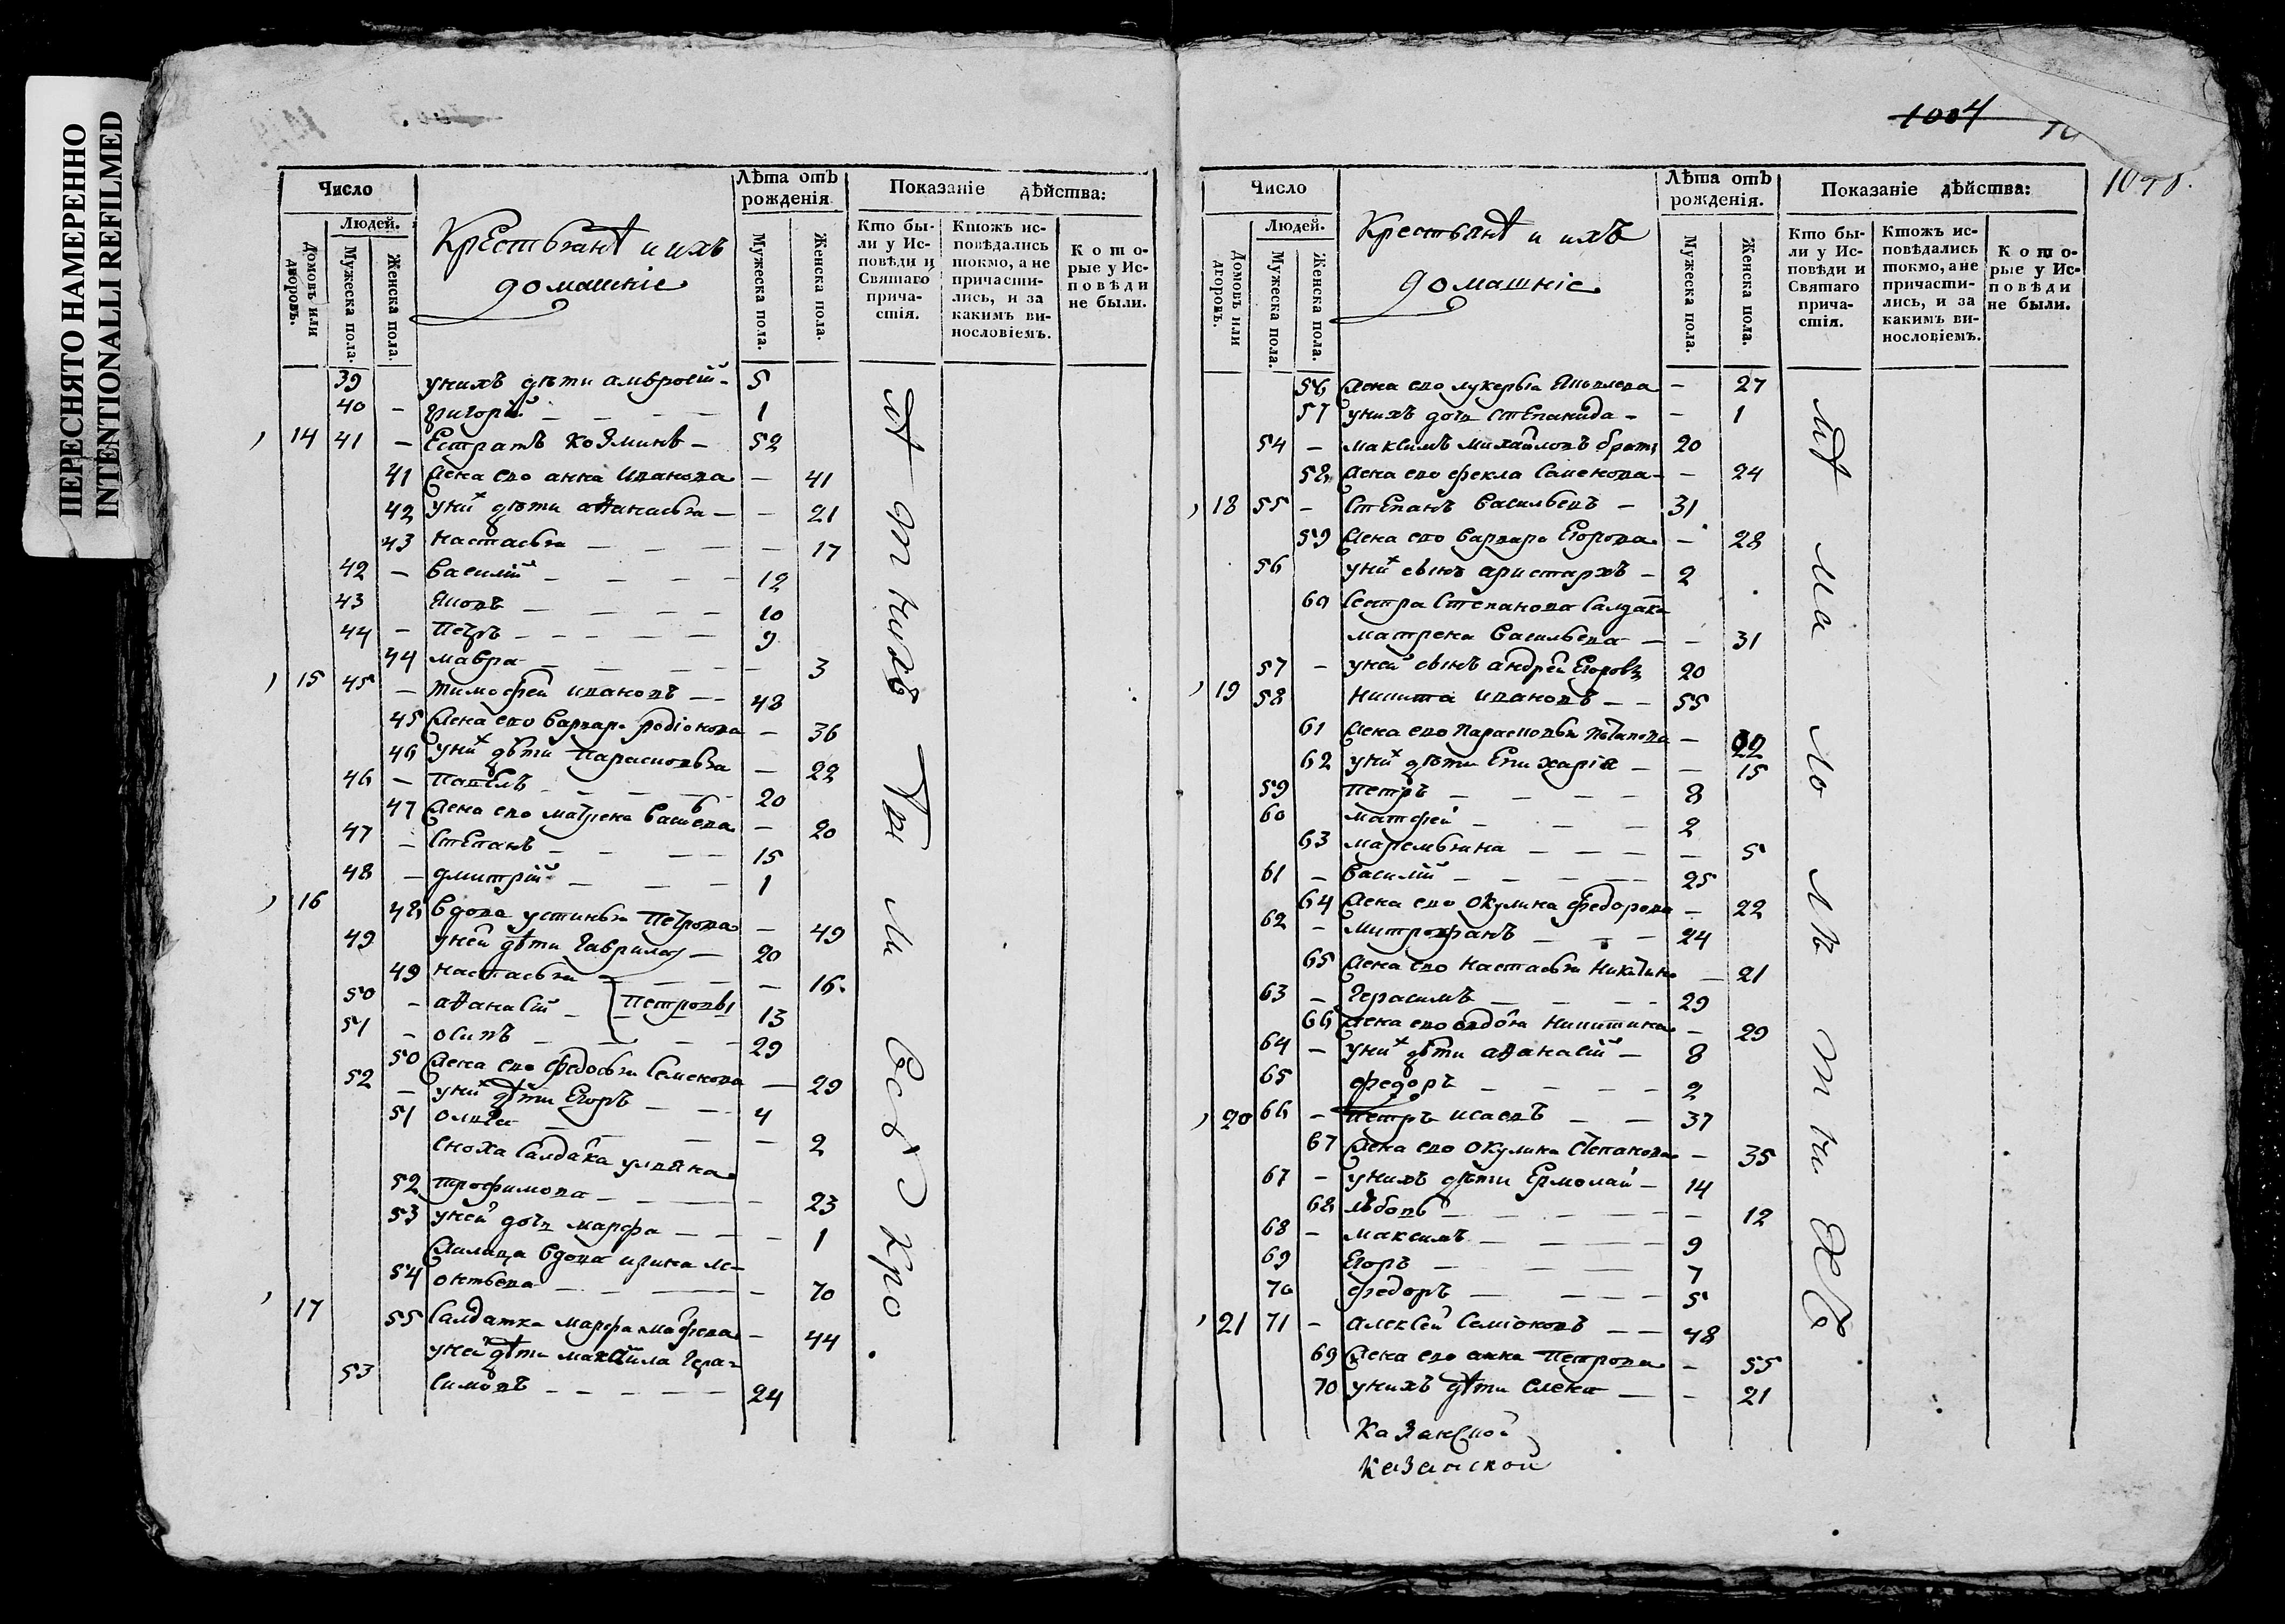 ПЕРЕСНЯТО НАМЕРЕННО
INTENTIONALLI REFILMED
Число
Лѣта отъ рожденія
Показаніе дѣйства:
Людей.
Домовъ или дворовъ.
Мужеска пола.
Женска пола.
Крестьянѣ и ихъ
домашніе
Мужеска пола.
Женска пола.
Кто были у Исповѣди и Святаго причастія.
Ктожъ исповѣдались токмо, а не причастились, и за какимъ винословіемъ.
Которые у Исповѣди не были.
39 унихъ дѣти амвросій 5
40 – григорій – – – 1
14 41 – Естратъ козминъ – 52
41 жена ево анна иванова – 41
42 уних дѣти аѳанасья – – 21
43 настасья – – – – 17
42 – василій – – – 12
43 яковъ – – – – 10
44 – Петръ – – – – 9
44 мавра – – – – 3
15 45 – тимофей ивановъ – – 48
45 жена ево варвара родіонова – 36
46 уних дѣти парасковья – 22
46 – павелъ – – – – 20
47 жена ево матрена васильева – 20
47 – степанъ – – – – 15
48 – дмитрій – – – 1
16 48 вдова устинья петрова – 49
49 уней дѣти гаврила – 20
49 настасья – – – 16
50 – аѳанасій – петровы 13
51 – осипъ – – – 29
50 жена ево федосья семенова – 29
52 – уних дѣти егоръ – – 4
51 олга – – – – 2
сноха салдатка ульяна
52 трофимова – – – 23
53 уней дочь марфа – – – 1
вдова ирина ле-
54 онтьева – – – – 70
17 55 салдатка марфа матфеева – 44
уней дѣти михайла гера-
53 симовъ – – – – – 24
1004
Число
Лѣта отъ рожденія.
Показаніе дѣйства:
Людей.
Домовъ или дворовъ.
Мужеска пола.
Женска пола.
Крестьянѣ и ихъ
домашніе
Мужеска пола.
Женска пола.
Кто были у Исповѣди и Святаго причастія.
Ктожъ исповѣдались токмо, а не причастились, и за какимъ винословіемъ.
Которые у Исповѣди не были.
56 жена ево лукерья яковлева – 27
57 унихъ дочь степанида – – 1
54 – максимъ михайловъ братъ 20
58 жена ево фекла семенова – – 24
18 55 – степанъ васильевъ – 31
59 жена ево варвара егорова – 28
56 уних сынъ аристархъ – 2
60 сестра степанова салдатка
матрена васильева – – 31
57 – уней сынъ андрей егоровъ 20
19 58 никита ивановъ – – 55
61 жена ево парасковья потапова –
62 уних дѣти епихарія – – 15
59 петръ – – – – 8
60 матфей – – – 2
63 маремьяна – – – – 5
61 – василій – – – – 25
64 жена ево окулина федорова – 22
62 – митрофанъ – – – 24
65 жена ево настасья никитина – 21
63 – герасимъ – – – 29
66 жена ево авдотья никитина – 29
64 – уних дѣти аѳанасій – 8
65 федоръ – – – – 2
20 66 – петръ исаевъ – – 37
67 жена ево окулина степанова – 35
67 – унихъ дѣти ермолай – 14
68 любовь – – – – 12
68 – максимъ – – – – 9
69 егоръ – – – 7
70 федоръ – – – – 5
21 71 – алексей семіоновъ – – 48
69 жена ево анна петрова – 55
70 унихъ дѣти елена – – 21
казанской
казанской